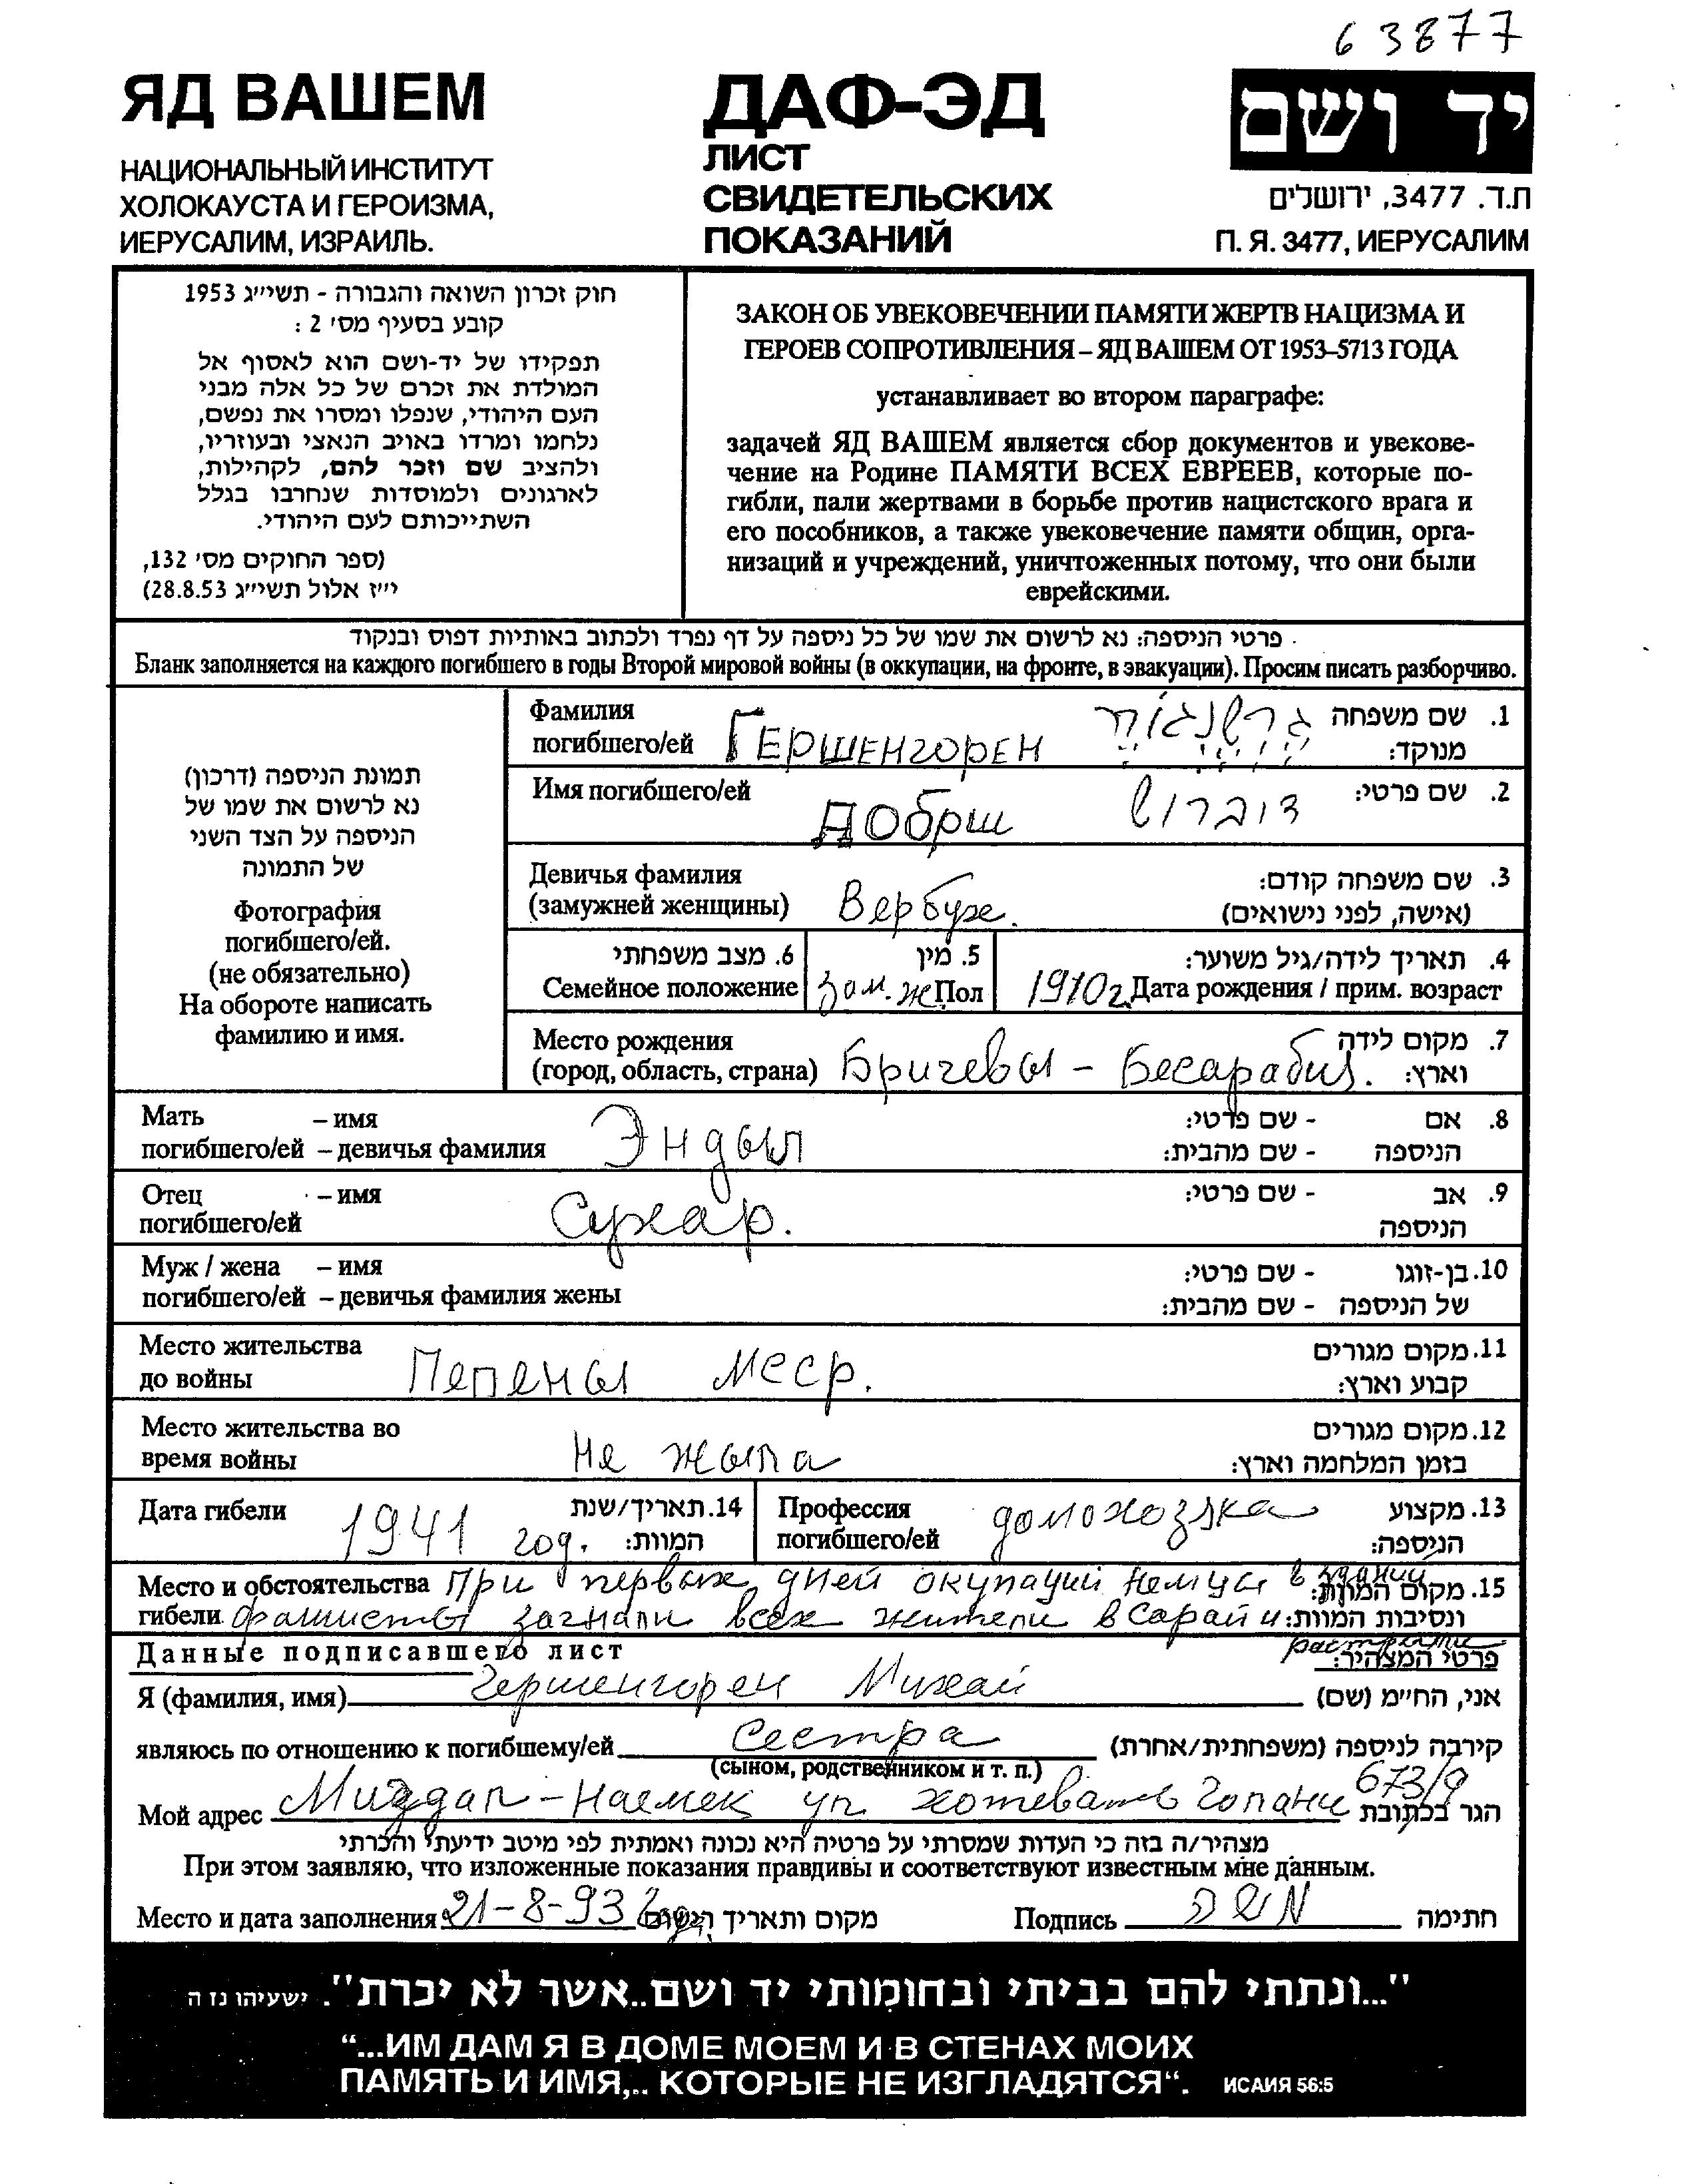 63877
ЯД ВАШЕМ
НАЦИОНАЛЬНЫЙ ИНСТИТУТ
ХОЛОКАУСТА И ГЕРОИЗМА,
ИЕРУСАЛИМ, ИЗРАИЛЬ.
ДАФ-ЭД
ЛИСТ
СВИДЕТЕЛЬСКИХ
ПОКАЗАНИЙ
יד ושם
ת.ד. 3477, ירושלים
П. Я. 3477, ИЕРУСАЛИМ
חוק זכרון השואה והגבורה - תשי״ג 1953
קובע בסעיף מס׳ 2 :
תפקידו של יד-ושם הוא לאסוף אל
המולדת את זכרם של כל אלה מבני
העם היהודי, שנפלו ומסרו את נפשם,
נלחמו ומרדו באויב הנאצי ובעוזריו,
ולהציב שם וזכר להם, לקהילות,
לארגונים ולמוסדות שנחרבו בגלל
השתייכותם לעם היהודי.
(ספר החוקים מס׳ 132,
י״ז אלול תשי״ג 28.8.53)
ЗАКОН ОБ УВЕКОВЕЧЕНИИ ПАМЯТИ ЖЕРТВ НАЦИЗМА И
ГЕРОЕВ СОПРОТИВЛЕНИЯ – ЯД ВАШЕМ ОТ 1953–5713 ГОДА
устанавливает во втором параграфе:
задачей ЯД ВАШЕМ является сбор документов и увекове-
чение на Родине ПАМЯТИ ВСЕХ ЕВРЕЕВ, которые по-
гибли, пали жертвами в борьбе против нацистского врага и
его пособников, а также увековечение памяти общин, орга-
низаций и учреждений, уничтоженных потому, что они были
еврейскими.
פרטי הניספה: נא לרשום את שמו של כל ניספה על דף נפרד ולכתוב באותיות דפוס ובנקוד
Бланк заполняется на каждого погибшего в годы Второй мировой войны (в оккупации, на фронте, в эвакуации). Просим писать разборчиво.
תמונת הניספה (דרכון)
נא לרשום את שמו של
הניספה על הצד השני
של התמונה
Фотография
погибшего/ей.
(не обязательно)
На обороте написать
фамилию и имя.
Фамилия 1. שם משפחה
погибшего/ей ГЕРШЕНГОРЕН מנוקד:
Имя погибшего/ей Добрш דוברוש 2. שם פרטי:
Девичья фамилия 3. שם משפחה קודם:
(замужней женщины) Вербух. (אישה, לפני נישואים)
6. מצב משפחתי 5. מין 4. תאריך לידה/גיל משוער:
Семейное положение зам. ж Пол 1910г. Дата рождения / прим. возраст
Место рождения 7. מקום לידה
(город, область, страна) Бричевы - Бесарабия. וארץ:
Мать – имя Эндыл 8. אם - שם פרטי:
погибшего/ей – девичья фамилия הניספה - שם מהבית:
Отец – имя 9. אב - שם פרטי:
погибшего/ей Сухар. הניספה
Муж / жена – имя 10. בן-זוגו - שם פרטי:
погибшего/ей – девичья фамилия жены של הניספה - שם מהבית:
Место жительства 11. מקום מגורים
до войны Пепены Мсср. קבוע וארץ:
Место жительства во 12. מקום מגורים
время войны Не жыла בזמן המלחמה וארץ:
Дата гибели 1941 год. 14. תאריך/שנת
המוות:
Профессия домохозяка 13. מקצוע
погибшего/ей הניספה:
Место и обстоятельства При первых дней окупаций Немцы в здании 15. מקום המוות:
гибели фашисты загнали всех жители в Сарай и ונסיבות המוות:
Данные подписавшего лист פרטי המצהיר:
Я (фамилия, имя) Гершенгорен Михай אני, הח״מ (שם)
являюсь по отношению к погибшему/ей Сестра קירבה לניספה (משפחתית/אחרת)
(сыном, родственником и т. п.)
673/9
Мой адрес Мигдал-Наемек ул. хотеват Голани הגר בכתובת
מצהיר/ה בזה כי העדות שמסרתי על פרטיה היא נכונה ואמתית לפי מיטב ידיעתי והכרתי
При этом заявляю, что изложенные показания правдивы и соответствуют известным мне данным.
Место и дата заполнения 21-8-93 מקום ותאריך הרישום Подпись משה חתימה
"...ונתתי להם בביתי ובחומותי יד ושם..אשר לא יכרת". ישעיהו נז ה
“...ИМ ДАМ Я В ДОМЕ МОЕМ И В СТЕНАХ МОИХ
ПАМЯТЬ И ИМЯ,.. КОТОРЫЕ НЕ ИЗГЛАДЯТСЯ“. ИСАИЯ 56:5